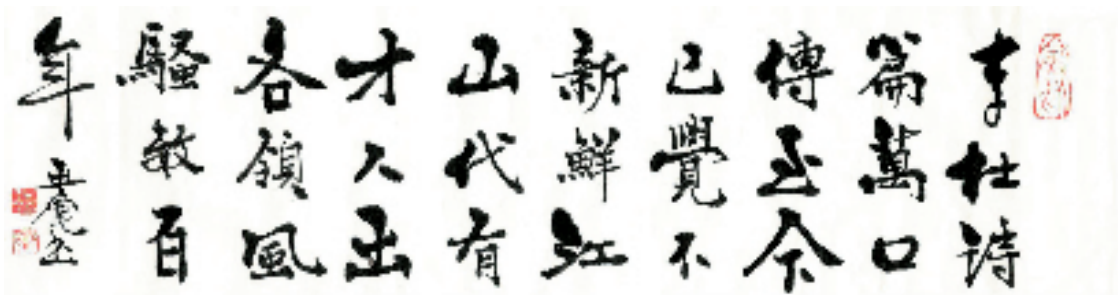 李杜诗
篇萬口
傳至今
已覺不
新鮮江
山代有
才人出
各領風
騷数百
年